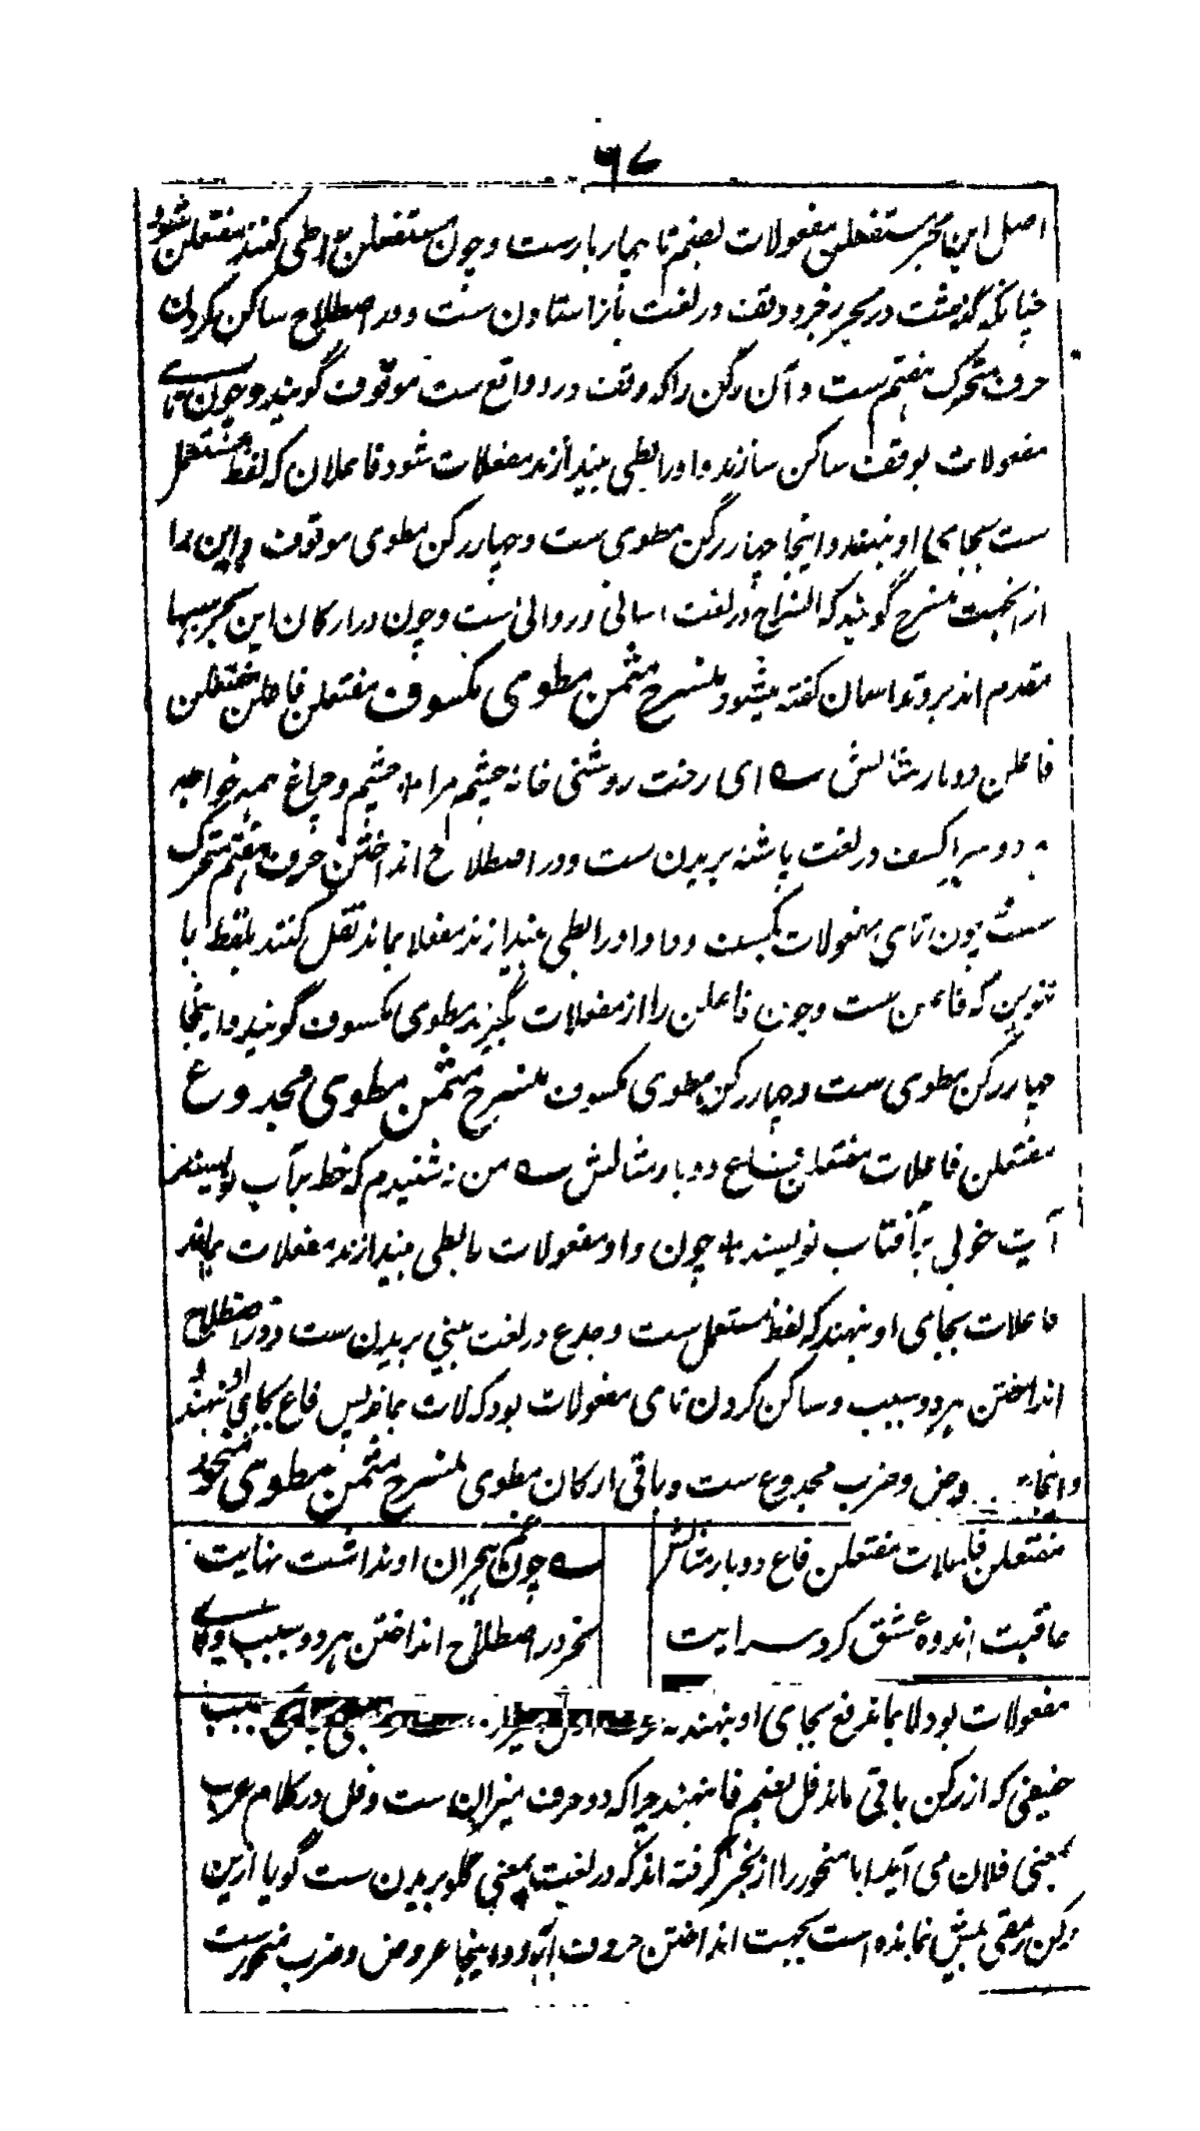 ۶۷
اصل این بحر مستفعلن مفعولات بضم تا چهار بارست و چون مستفعلن را طی کنند مفتعلن شود
چنانکه گذشت در بحر رجز و وقف در لغت باز استادن ست و در اصطلاح ساکن کردن
حرف متحرک هفتم ست و آن رکن را که وقف در و واقع ست موقوف گویند و چون تای
مفعولات بوقف ساکن سازند و او را بطی بیندازند مفعلات شود فاعلان که لفظ مستعمل
ست بجای او نهند و اینجا چهار رکن مطوی ست و چهار رکن مطوی موقوف و این را
ازانجهت منسرح گویند که انسراح در لغت اسانی و روانی ست و چون در ارکان این بحر سببها
مقدم اند بر وتد اسان گفته میشود منسرح مثمن مطوی مکسوف مفتعلن فاعلن مفتعلن
فاعلن دوبار مثالش ای رخت روشنی خانه چشم مرا چشم و چراغ همه خواجه
دوسرا کسف در لغت پاشنه بریدن ست و در اصطلاح انداختن حرف هفتم متحرک
ست چون تای مفعولات بکسف و واو را بطی بیندازند مفعلا بماند نقل کنند بلفظ با
تنوین که فاعلن ست و چون فاعلن را از مفعولات بگیرند مطوی مکسوف گویند و اینجا
چهار رکن مطوی ست و چهار رکن مطوی مکسوف منسرح مثمن مطوی مجدوع
مفتعلن فاعلات مفتعلن فاع دوبار مثالش من نشنیدم که خط بر آب نویسند
آیت خوبی بر آفتاب نویسند چون واو مفعولات را بطی بیندازند مفعلات بماند
فاعلات بجای او نهند که لفظ مستعمل ست و جدع در لغت بینی بریدن ست و در اصطلاح
انداختن هر دو سبب و ساکن کردن تای مفعولات بود که لات بماند پس فاع بجای او نهند و
و اینجا عروض و ضرب مجدوع ست و باقی ارکان مطوی منسرح مثمن مطوی منحور
مفتعلن فاعلات مفتعلن فاع دوبار مثالش چون غم هجران او نداشت نهایت
عاقبت اندوه عشق کرد سرایت نحر در اصطلاح انداختن هر دو سبب و تای
مفعولات بود لا بماند فع بجای او نهند بجای سبب
خفیفی که از رکن باقی ماند فل بضم فا نهند چرا که دو حرف میزان ست و فل در کلام عرب
بمعنی فلان می آید اما منحور را از نحر گرفته اند که در لغت بمعنی گلو بریدن ست گویا ازین
رکن رمقی بیش نمانده است بجهت انداختن حروف و اینجا عروض و ضرب منحورست